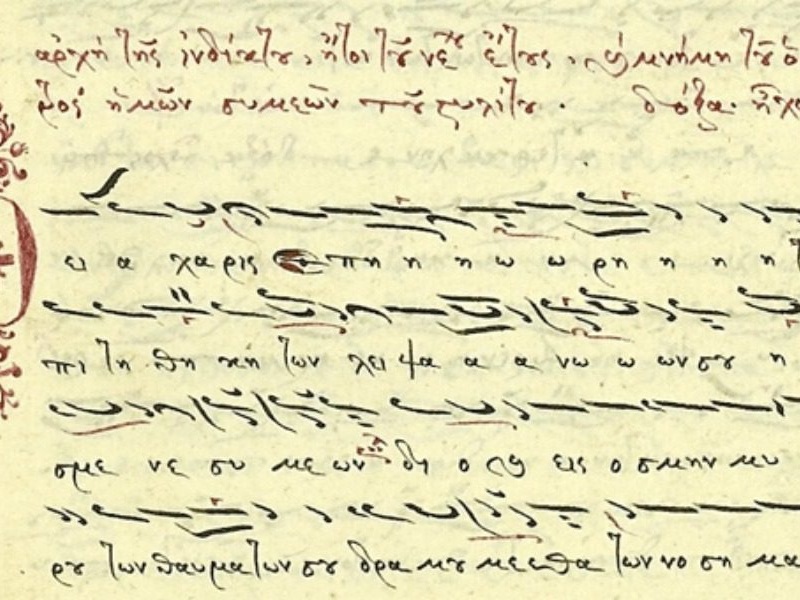 ἀρχὴ τῆς ἰνδίκτου, ἤτοι τοῦ νέου ἔτους, μνήμη τοῦ ὁ
ἡμῶν συμεῶν τοῦ στυλίτου. δόξα. ἦχ
ει α χαρις επη η η ω ω ρη η η η
πι τη θη κη των λει ψα α α νω ω ων σου η
σμε νε συ με ων δι ο εις ο σμην μυ
ρου των θαυμα των σου δρα μου με ε θα των νο ση μα